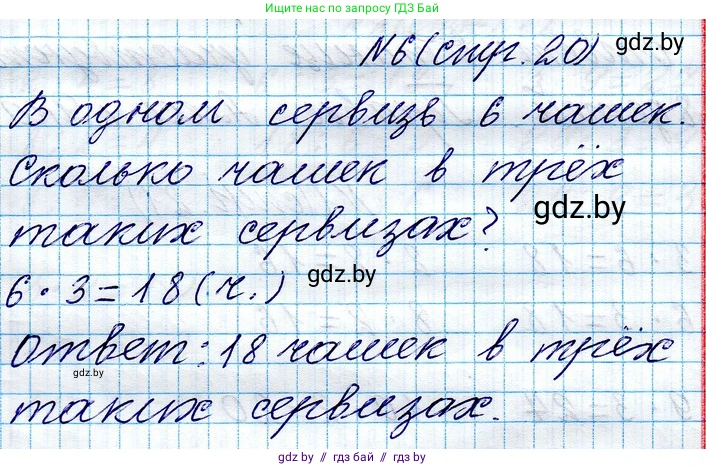 Ищите нас по запросу ГДЗ Бай
№6 (стр. 20) gdz.by
В одном сервизе 6 чашек.
Сколько чашек в трёх
таких сервизах? gdz.by
6 · 3 = 18 (ч.) gdz.by
Ответ: 18 чашек в трёх
gdz.by
таких сервизах.
gdz.by // гдз бай // гдз бу